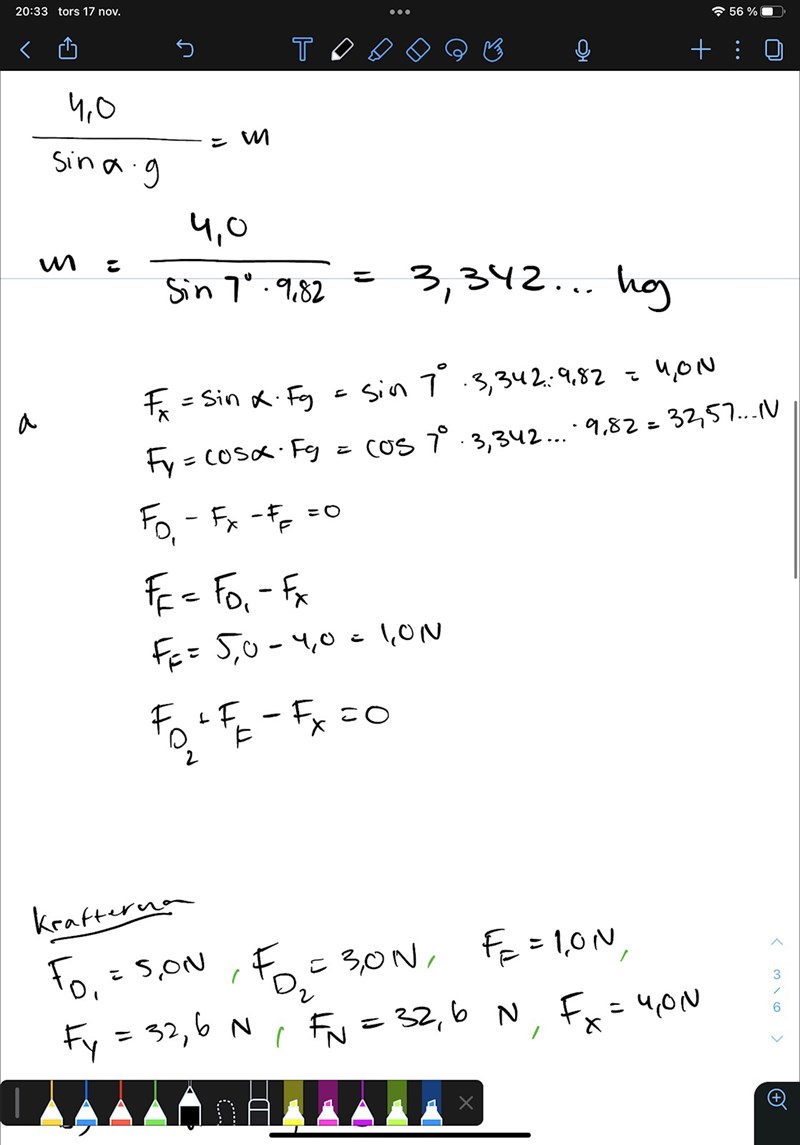 20:33 tors 17 nov. 56 %
4,0
sin α · g = m
m = 4,0
sin 7° · 9,82 = 3,342... kg
a
Fx = sin α · Fg = sin 7° · 3,342.. · 9,82 = 4,0 N
Fy = cos α · Fg = cos 7° · 3,342... · 9,82 = 32,57... N
FD1 - Fx - FF = 0
FF = FD1 - Fx
FF = 5,0 - 4,0 = 1,0 N
FD2 + FF - Fx = 0
Krafterna
FD1 = 5,0 N, FD2 = 3,0 N, FF = 1,0 N,
Fy = 32,6 N, FN = 32,6 N, Fx = 4,0 N
3
/
6